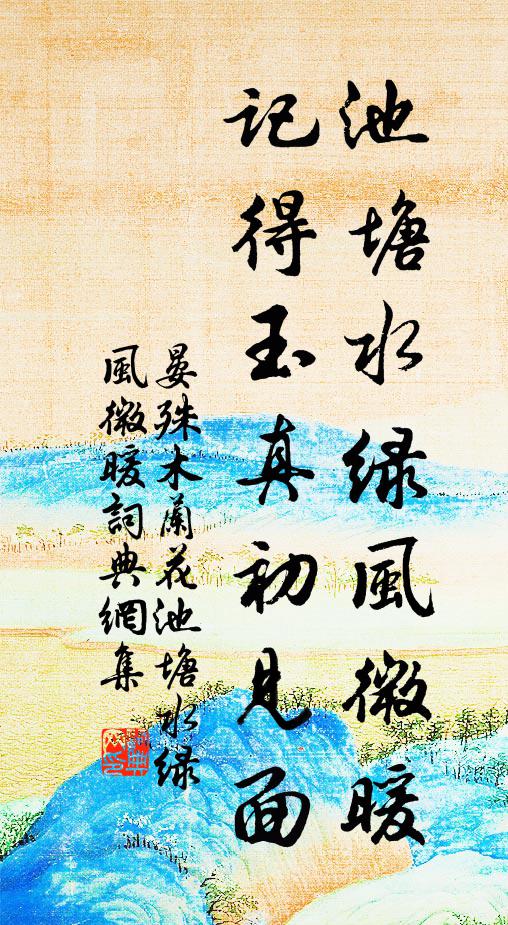 池塘水緑風微暖
記得玉真初見面
晏殊木蘭花池塘水緑
風微暖詞典網集